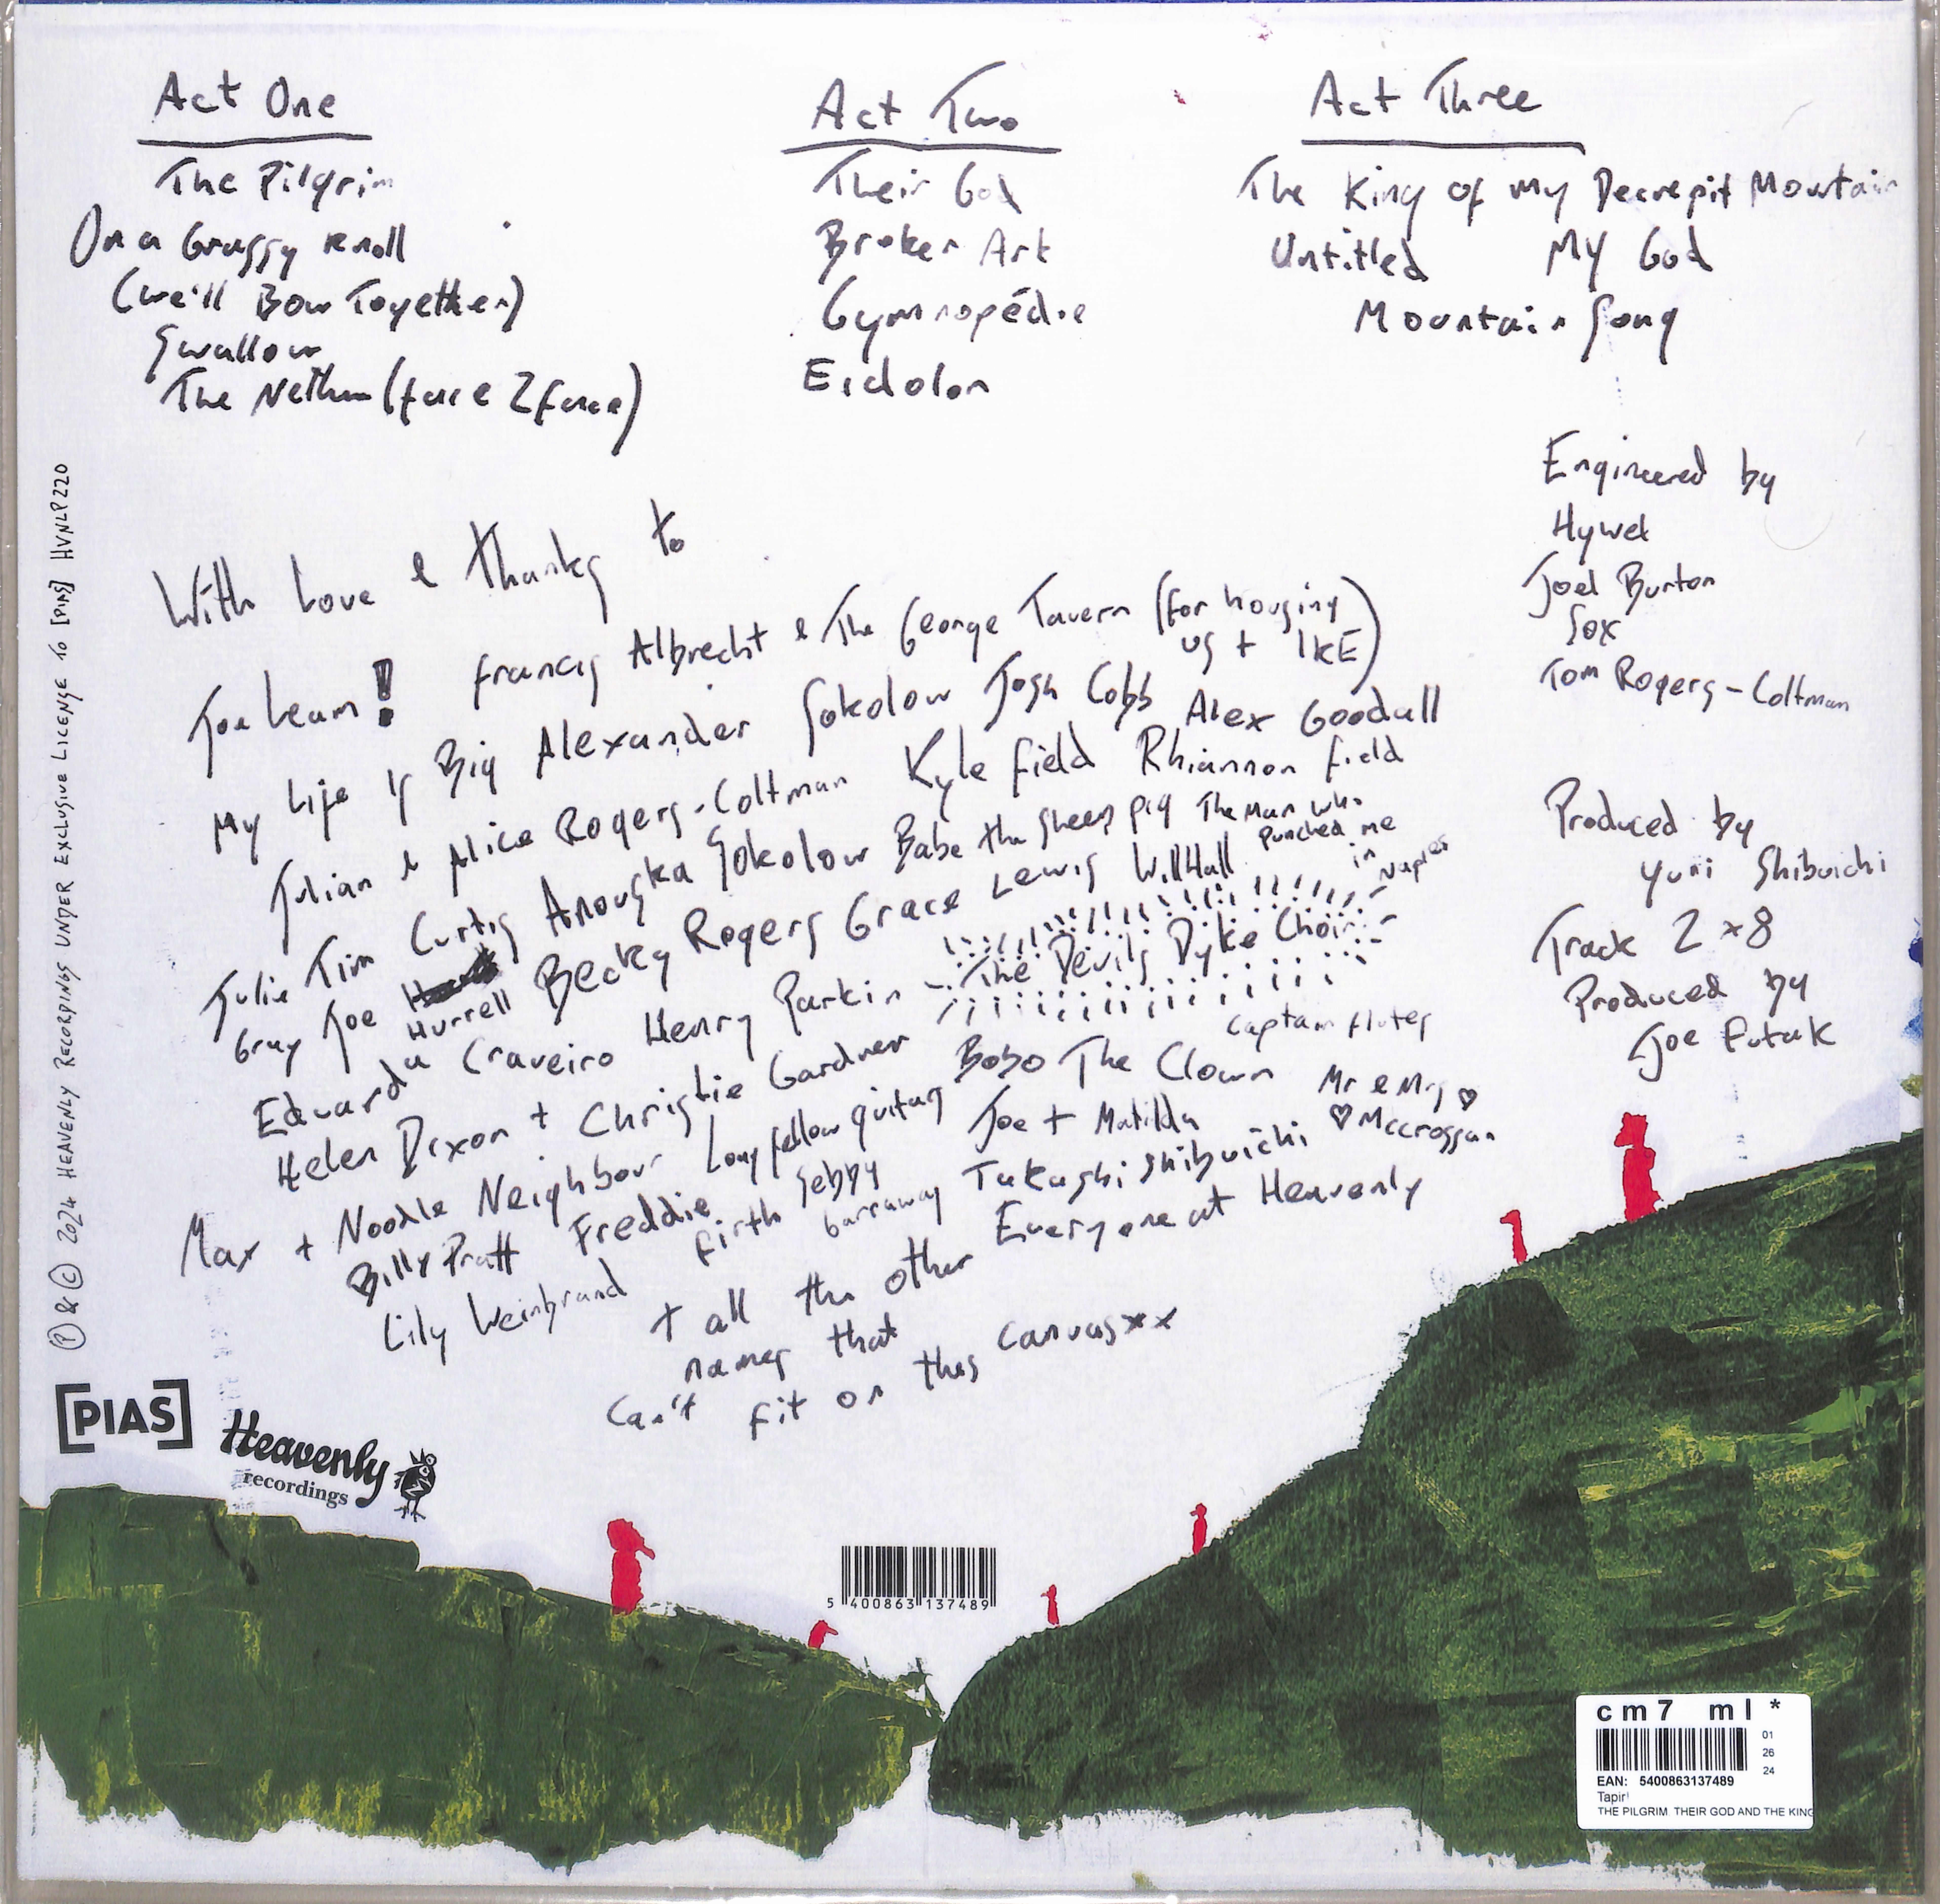 Act One
The Pilgrim
On a Grassy Knoll
(We'll Bow Together)
Swallow
The Nether (face 2 face)
Act Two
Their God
Broken Art
Gymnopédie
Eidolon
Act Three
The King of My Decrepit Mountain
Untitled
My God
Mountain Song
Engineered by
Hywel
Joel Burton
Sox
Tom Rogers-Coltman
Produced by
Yuri Shibuichi
Track 2 + 8
Produced by
Joe Futak
With Love & Thanks to
Joe Leam! Francis Albrecht & The George Tavern (for housing
us + IKE)
My Life Is Big Alexander Sokolow Josh Cobb Alex Goodall
Julian & Alice Rogers-Coltman Kyle Field Rhiannon Field
Julie Tim Curtis Anouska Sokolow Babe the Sheep pig The Man Who
punched me
in Naples
Gray Joe Hurrell Becky Rogers Grace Lewis Will Hall
Eduarda Craveiro Henry Parkin The Devils Dyke Choir
Helen Dixon + Christie Gardner Bobo The Clown Captain flutes
Max + Noodle Neighbour Longfellow guitars Joe + Matilda Mr & Mrs ♡
♡ Mccrossan
Billy Pratt Freddie Firth Sebby barraway Takashi Shibuichi
Lily Weinbrand Everyone at Heavenly
+ all the other
names that
Can't fit on this canvas xx
Ⓟ & © 2024 HEAVENLY RECORDINGS UNDER EXCLUSIVE LICENSE TO [PIAS] HVNLP220
[PIAS]
Heavenly
recordings
5 400863 137489
cm7 ml *
01
26
24
EAN: 5400863137489
Tapir!
THE PILGRIM THEIR GOD AND THE KING